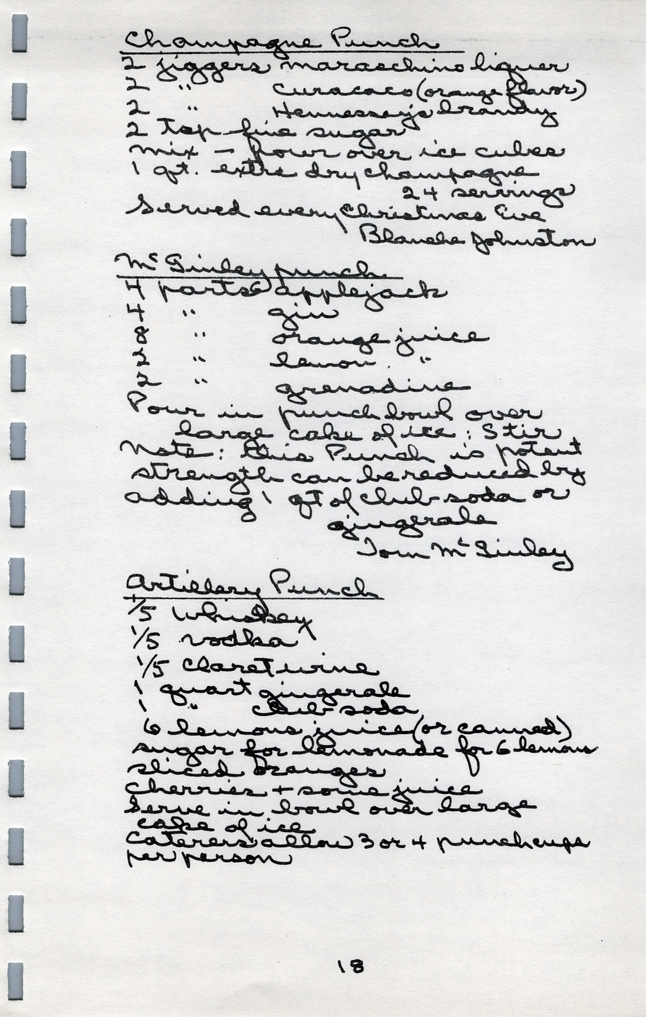 Champagne Punch
2 jiggers maraschino liquer
2 " Curacaco (orange flavor)
2 " Hennessey's brandy
2 tsp fine sugar
Mix - pour over ice cubes
1 qt. extra dry champagne
24 servings
Served every Christmas Eve
Blanche Johnston
McGinley punch
4 parts applejack
4 " gin
8 " orange juice
2 " lemon "
2 " grenadine
Pour in punch bowl over
large cake of ice: Stir
Note: this Punch is potent
strength can be reduced by
adding 1 qt of club soda or
gingerale
Tom McGinley
Artillery Punch
1/5 whiskey
1/5 vodka
1/5 claret wine
1 quart gingerale
1 " club soda
6 lemons juice (or canned)
sugar for lemonade for 6 lemons
sliced oranges
cherries + some juice
Serve in bowl over large
cake of ice
Caterers allow 3 or 4 punch cups
per person
18